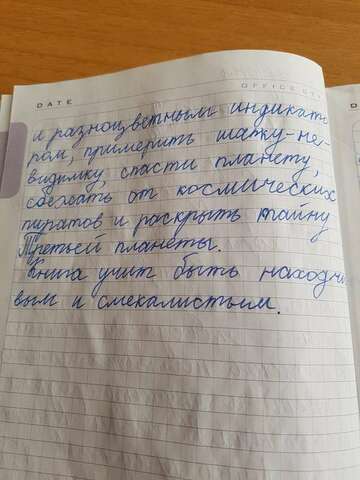 DATE OFFICE
и разноцветным индикато
ром, примерить шапку-не-
видимку, спасти планету,
сбежать от космических
пиратов и раскрыть тайну
Третьей планеты.
Книга учит быть находчи
вым и смекалистым.